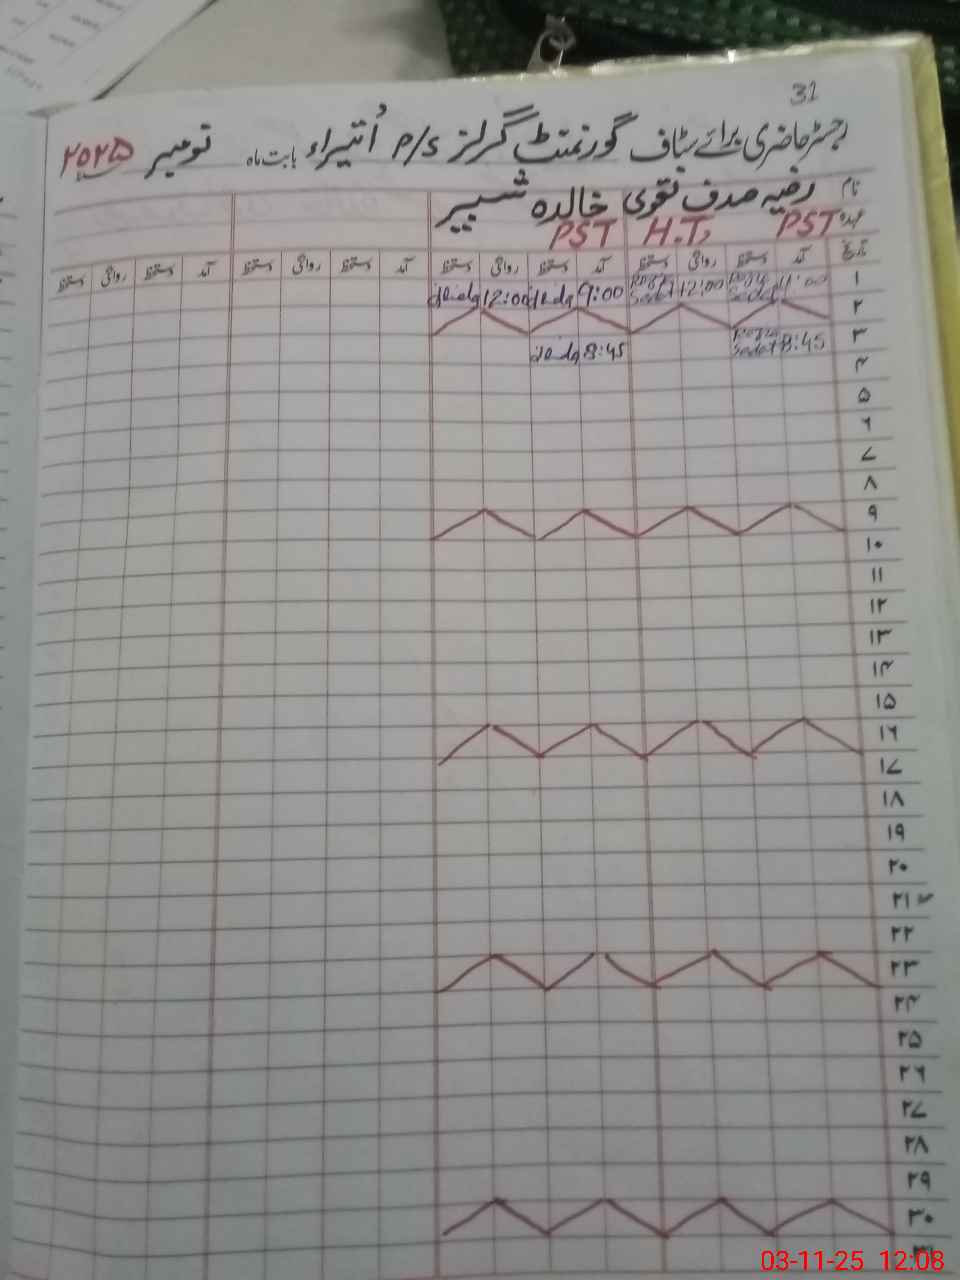 32
رجسٹر حاضری برائے سٹاف گورنمنٹ گرلز P/S اُتیراء بابت ماہ نومبر ۲۰۲۵
نام رضیہ صدف نقوی خالدہ شبیر
عہدہ PST H.T, PST
تاریخ آمد دستخط روانگی دستخط آمد دستخط روانگی دستخط آمد دستخط روانگی دستخط آمد دستخط روانگی دستخط
۱ 12:00 9:00 12:00
۲
۳ 8:45 8:45
۴
۵
۶
۷
۸
۹
۱۰
۱۱
۱۲
۱۳
۱۴
۱۵
۱۶
۱۷
۱۸
۱۹
۲۰
۲۱
۲۲
۲۳
۲۴
۲۵
۲۶
۲۷
۲۸
۲۹
۳۰
۳۱
03-11-25 12:08